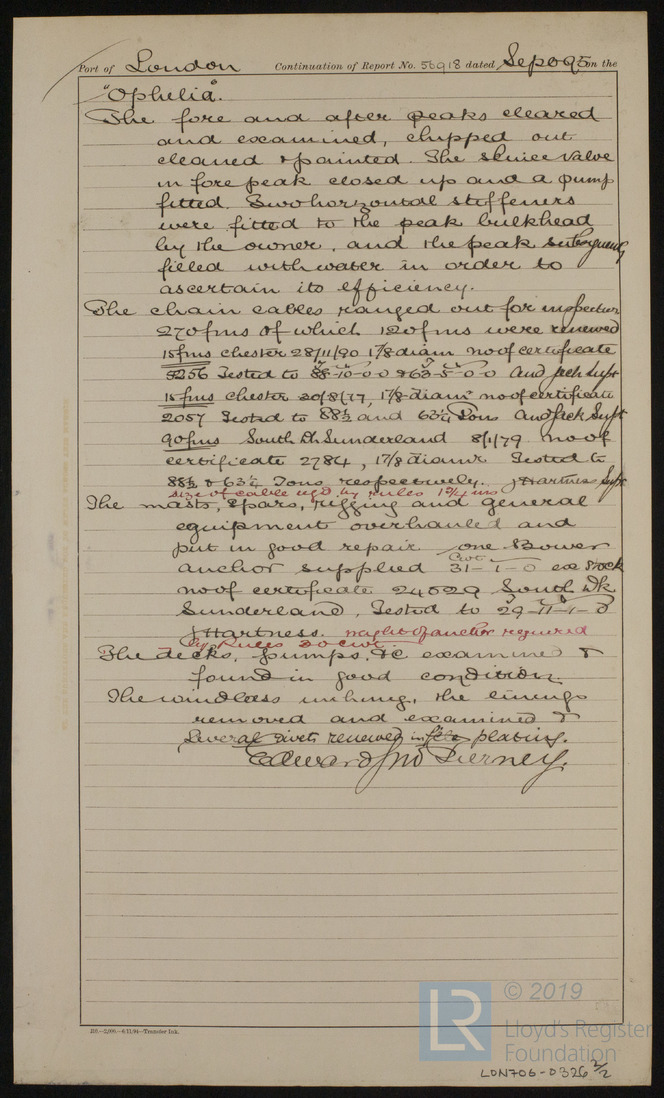 Port of London Continuation of Report No. 56918 dated Sep 95 on the
"Ophelia".
The fore and after peaks cleared
and examined, chipped out
cleaned & painted. The sluice valve
in fore peak closed up and a pump
fitted. Two horizontal stiffeners
were fitted to the peak bulkhead
by the owner, and the peak subsequently
filled with water in order to
ascertain its efficiency.
The chain cables ranged out for inspection
270 fms of which 120 fms were renewed
15 fms Chester 28/11/90 1 7/8 diam no of certificate
Tested to 88-10-0-0 & 63-5-0-0 Supt
15 fms Chester 20/8/77, 1 7/8 diamr no of certificate
2057 Tested to 88½ and 63¼ Tons Supt
90 fms South Dk Sunderland 8/1/79 no of
certificate 2784, 1 7/8 diamr Tested to
88½ & 63¼ Tons respectively. J Hartness Supt
size of cable reqd by rules
The masts, spars, rigging and general
equipment overhauled and
put in good repair one Bower
Cwt
anchor supplied 31-1-0 ex Stock
no of certificate 24529 South Dk
Sunderland, Tested to 29-11-1-0
J Hartness. weight of anchor required
by Rules 30 cwt.
The decks, pumps, &c examined &
found in good condition
The windlass unhung, the linings
removed and examined &
several rivets renewed in plating.
Edward Jno Tierney.
205.—2,000.—6/11/94—Transfer Ink.
LR
© 2019
Lloyd's Register
Foundation
LON706-0326 2/2